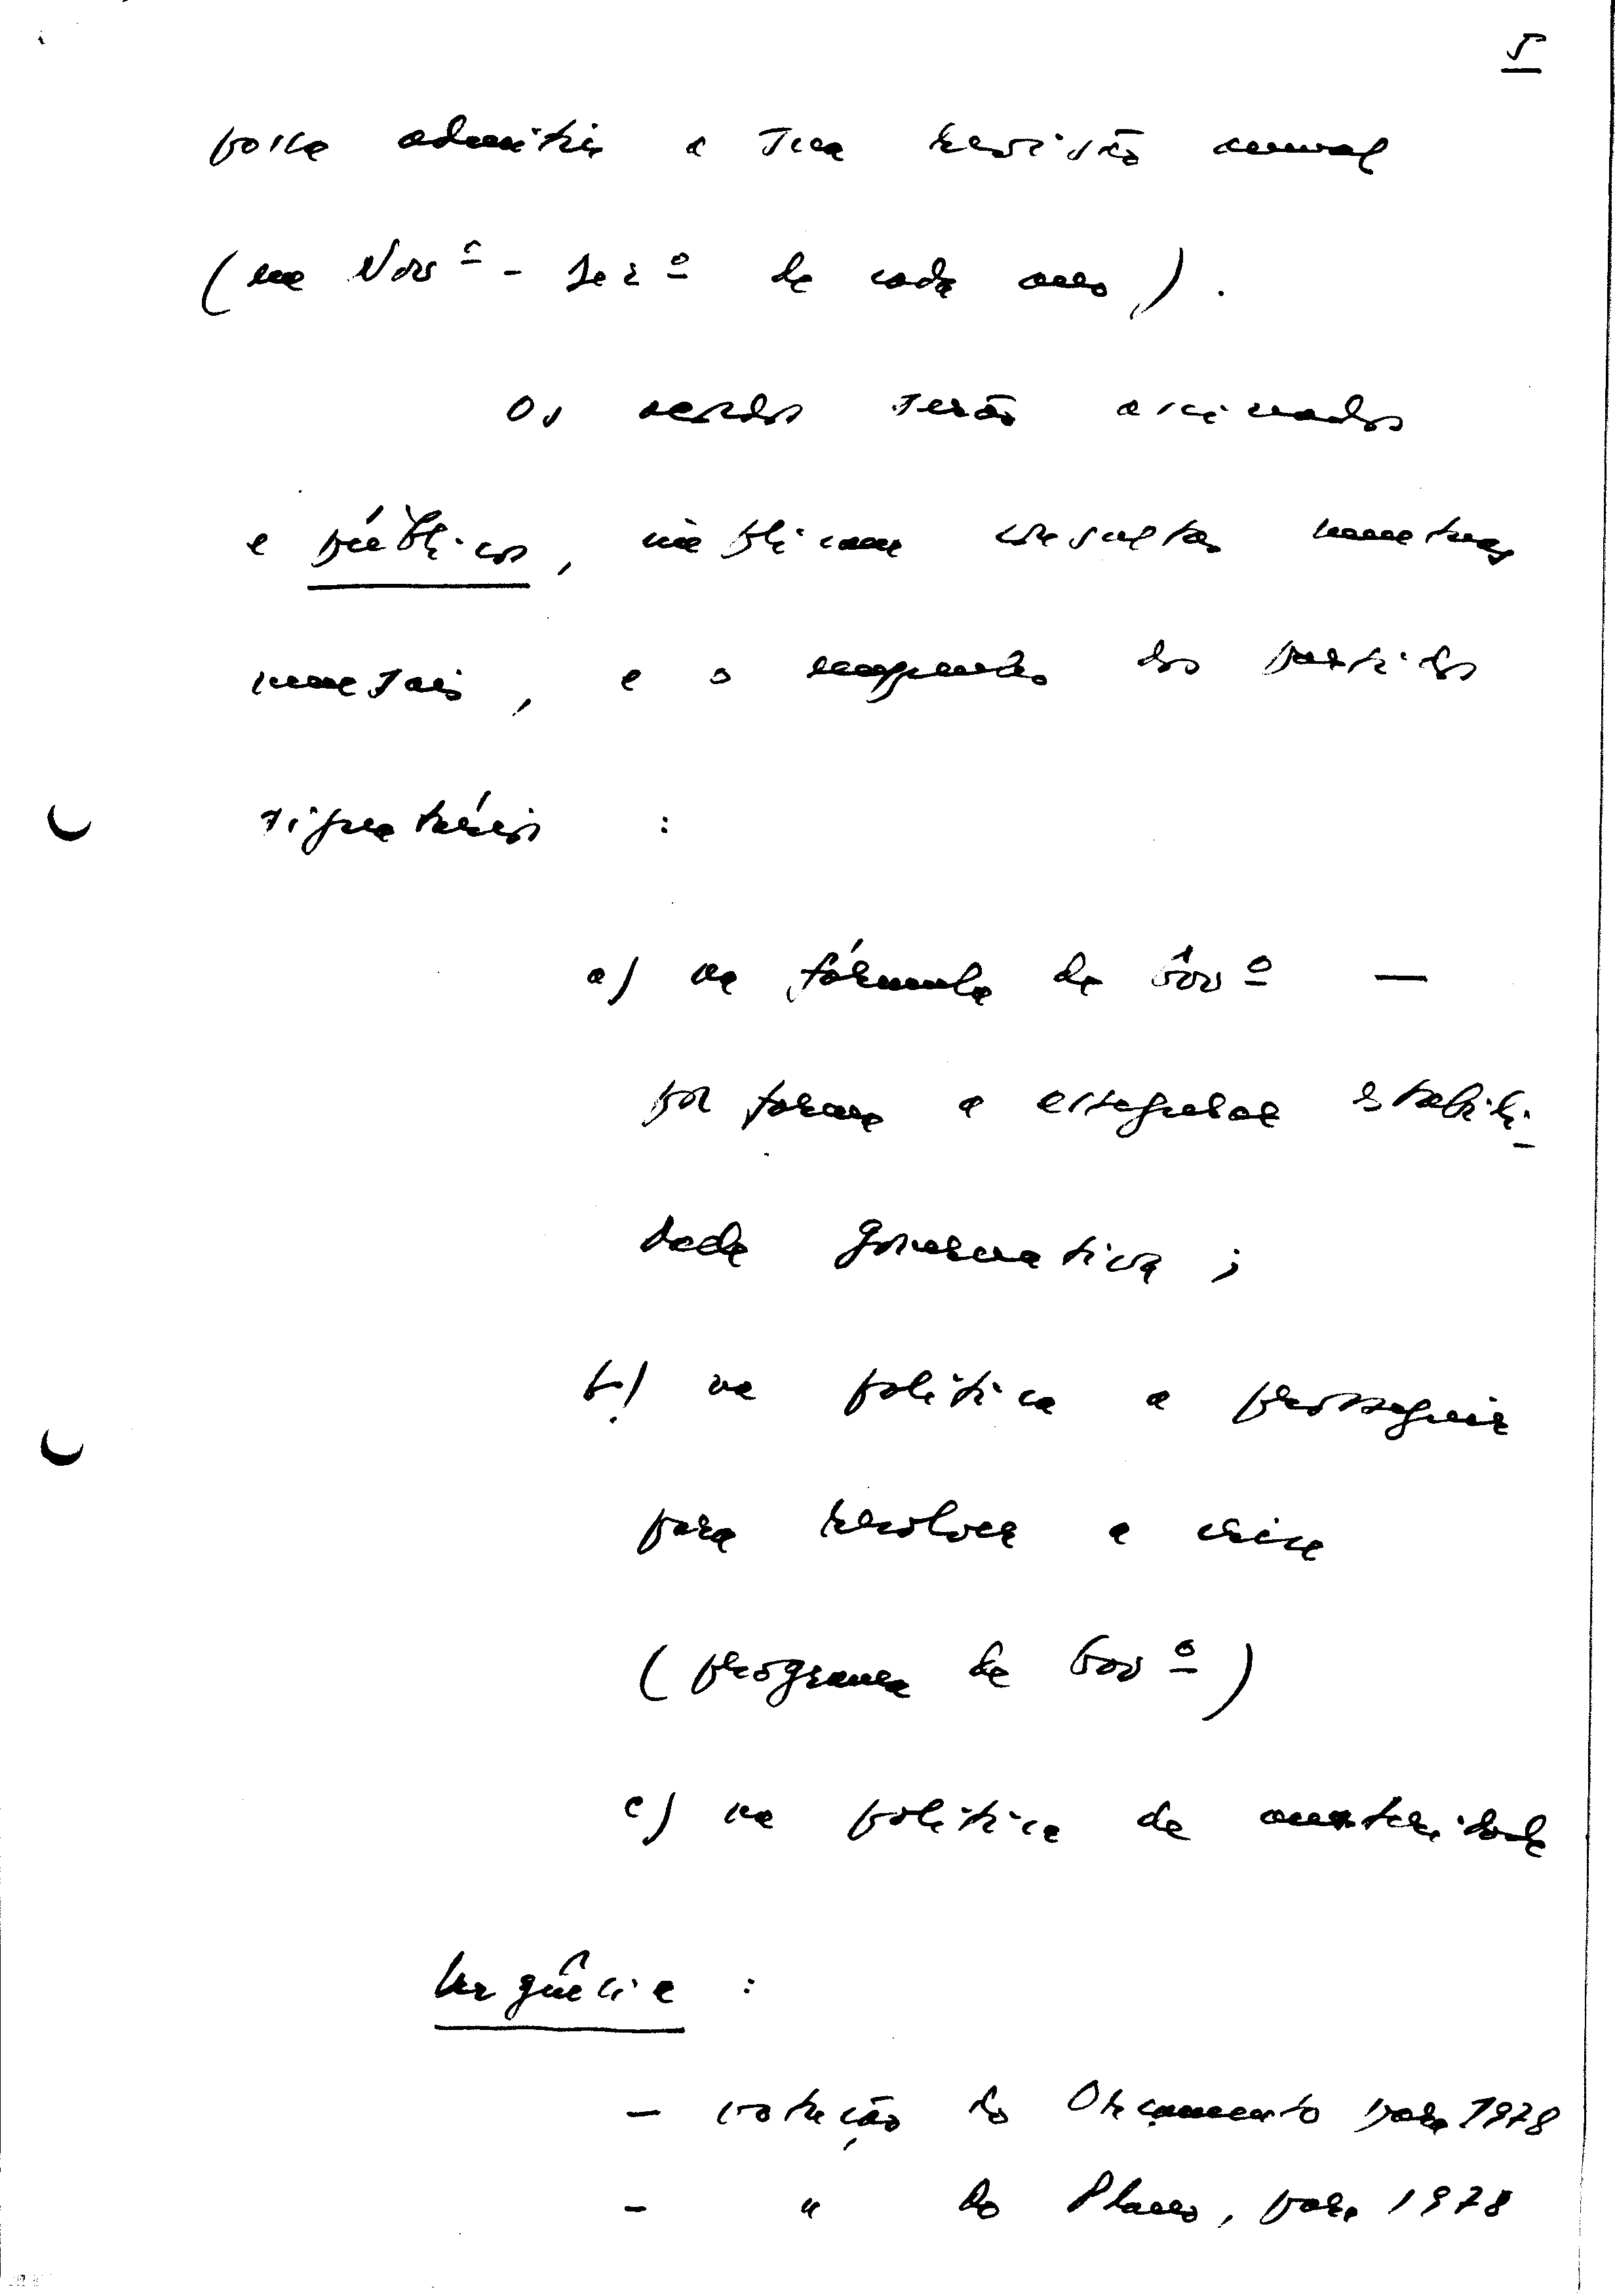 5
possa admitir a sua revisão anual
(em Novº - Dezº de cada ano).
Os acordos serão assinados
e públicos, implicam consultas mútuas
mensais, e o empenho dos partidos
signatários :
a) na fórmula de Govº —
por forma a assegurar estabili-
dade governativa ;
b) na política a prosseguir
para resolver a crise
(programa de Govº)
c) na política de austeridade
Urgência :
- votação do Orçamento para 1978
- " do Plano, para 1978